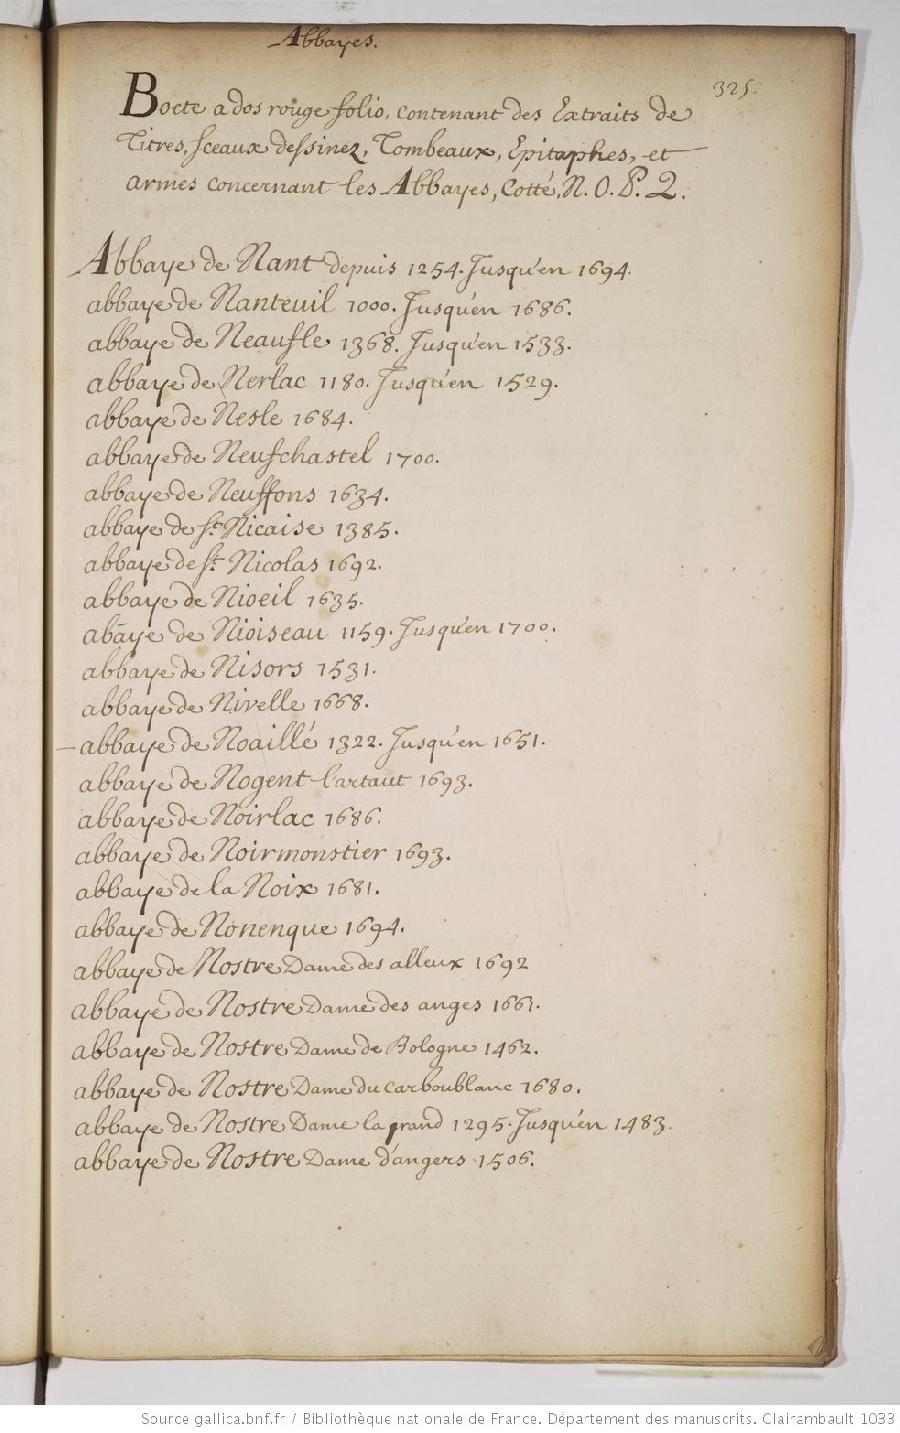 Abbayes.
325.
Bocte a dos rouge folio, contenant des Extraits de
Titres, sceaux dessinez, Tombeaux, Epitaphes, et
armes concernant les Abbayes, Cotté, N. O. P. Q.
Abbaye de Nant depuis 1254. Jusqu'en 1694.
abbaye de Nanteuil 1000. Jusqu'en 1686.
abbaye de Neaufle 1368. Jusqu'en 1533.
abbaye de Nerlac 1180. Jusqu'en 1529.
abbaye de Nesle 1684.
abbaye de Neufchastel 1700.
abbaye de Neuffons 1634.
abbaye de St. Nicaise 1385.
abbaye de St. Nicolas 1692.
abbaye de Nioeil 1635.
abaye de Nioiseau 1159. Jusqu'en 1700.
abbaye de Nisors 1531.
abbaye de Nivelle 1668.
abbaye de Noaillé 1322. Jusqu'en 1651.
abbaye de Nogent l'artaut 1693.
abbaye de Noirlac 1686.
abbaye de Noirmonstier 1693.
abbaye de la Noix 1681.
abbaye de Nonenque 1694.
abbaye de Nostre Dame des alleux 1692
abbaye de Nostre Dame des anges 1661.
abbaye de Nostre Dame de Bologne 1462.
abbaye de Nostre Dame du carboublanc 1680.
abbaye de Nostre Dame la grand 1295. Jusqu'en 1483.
abbaye de Nostre Dame d'angers 1506.
Source gallica.bnf.fr / Bibliothèque nationale de France. Département des manuscrits. Clairambault 1033